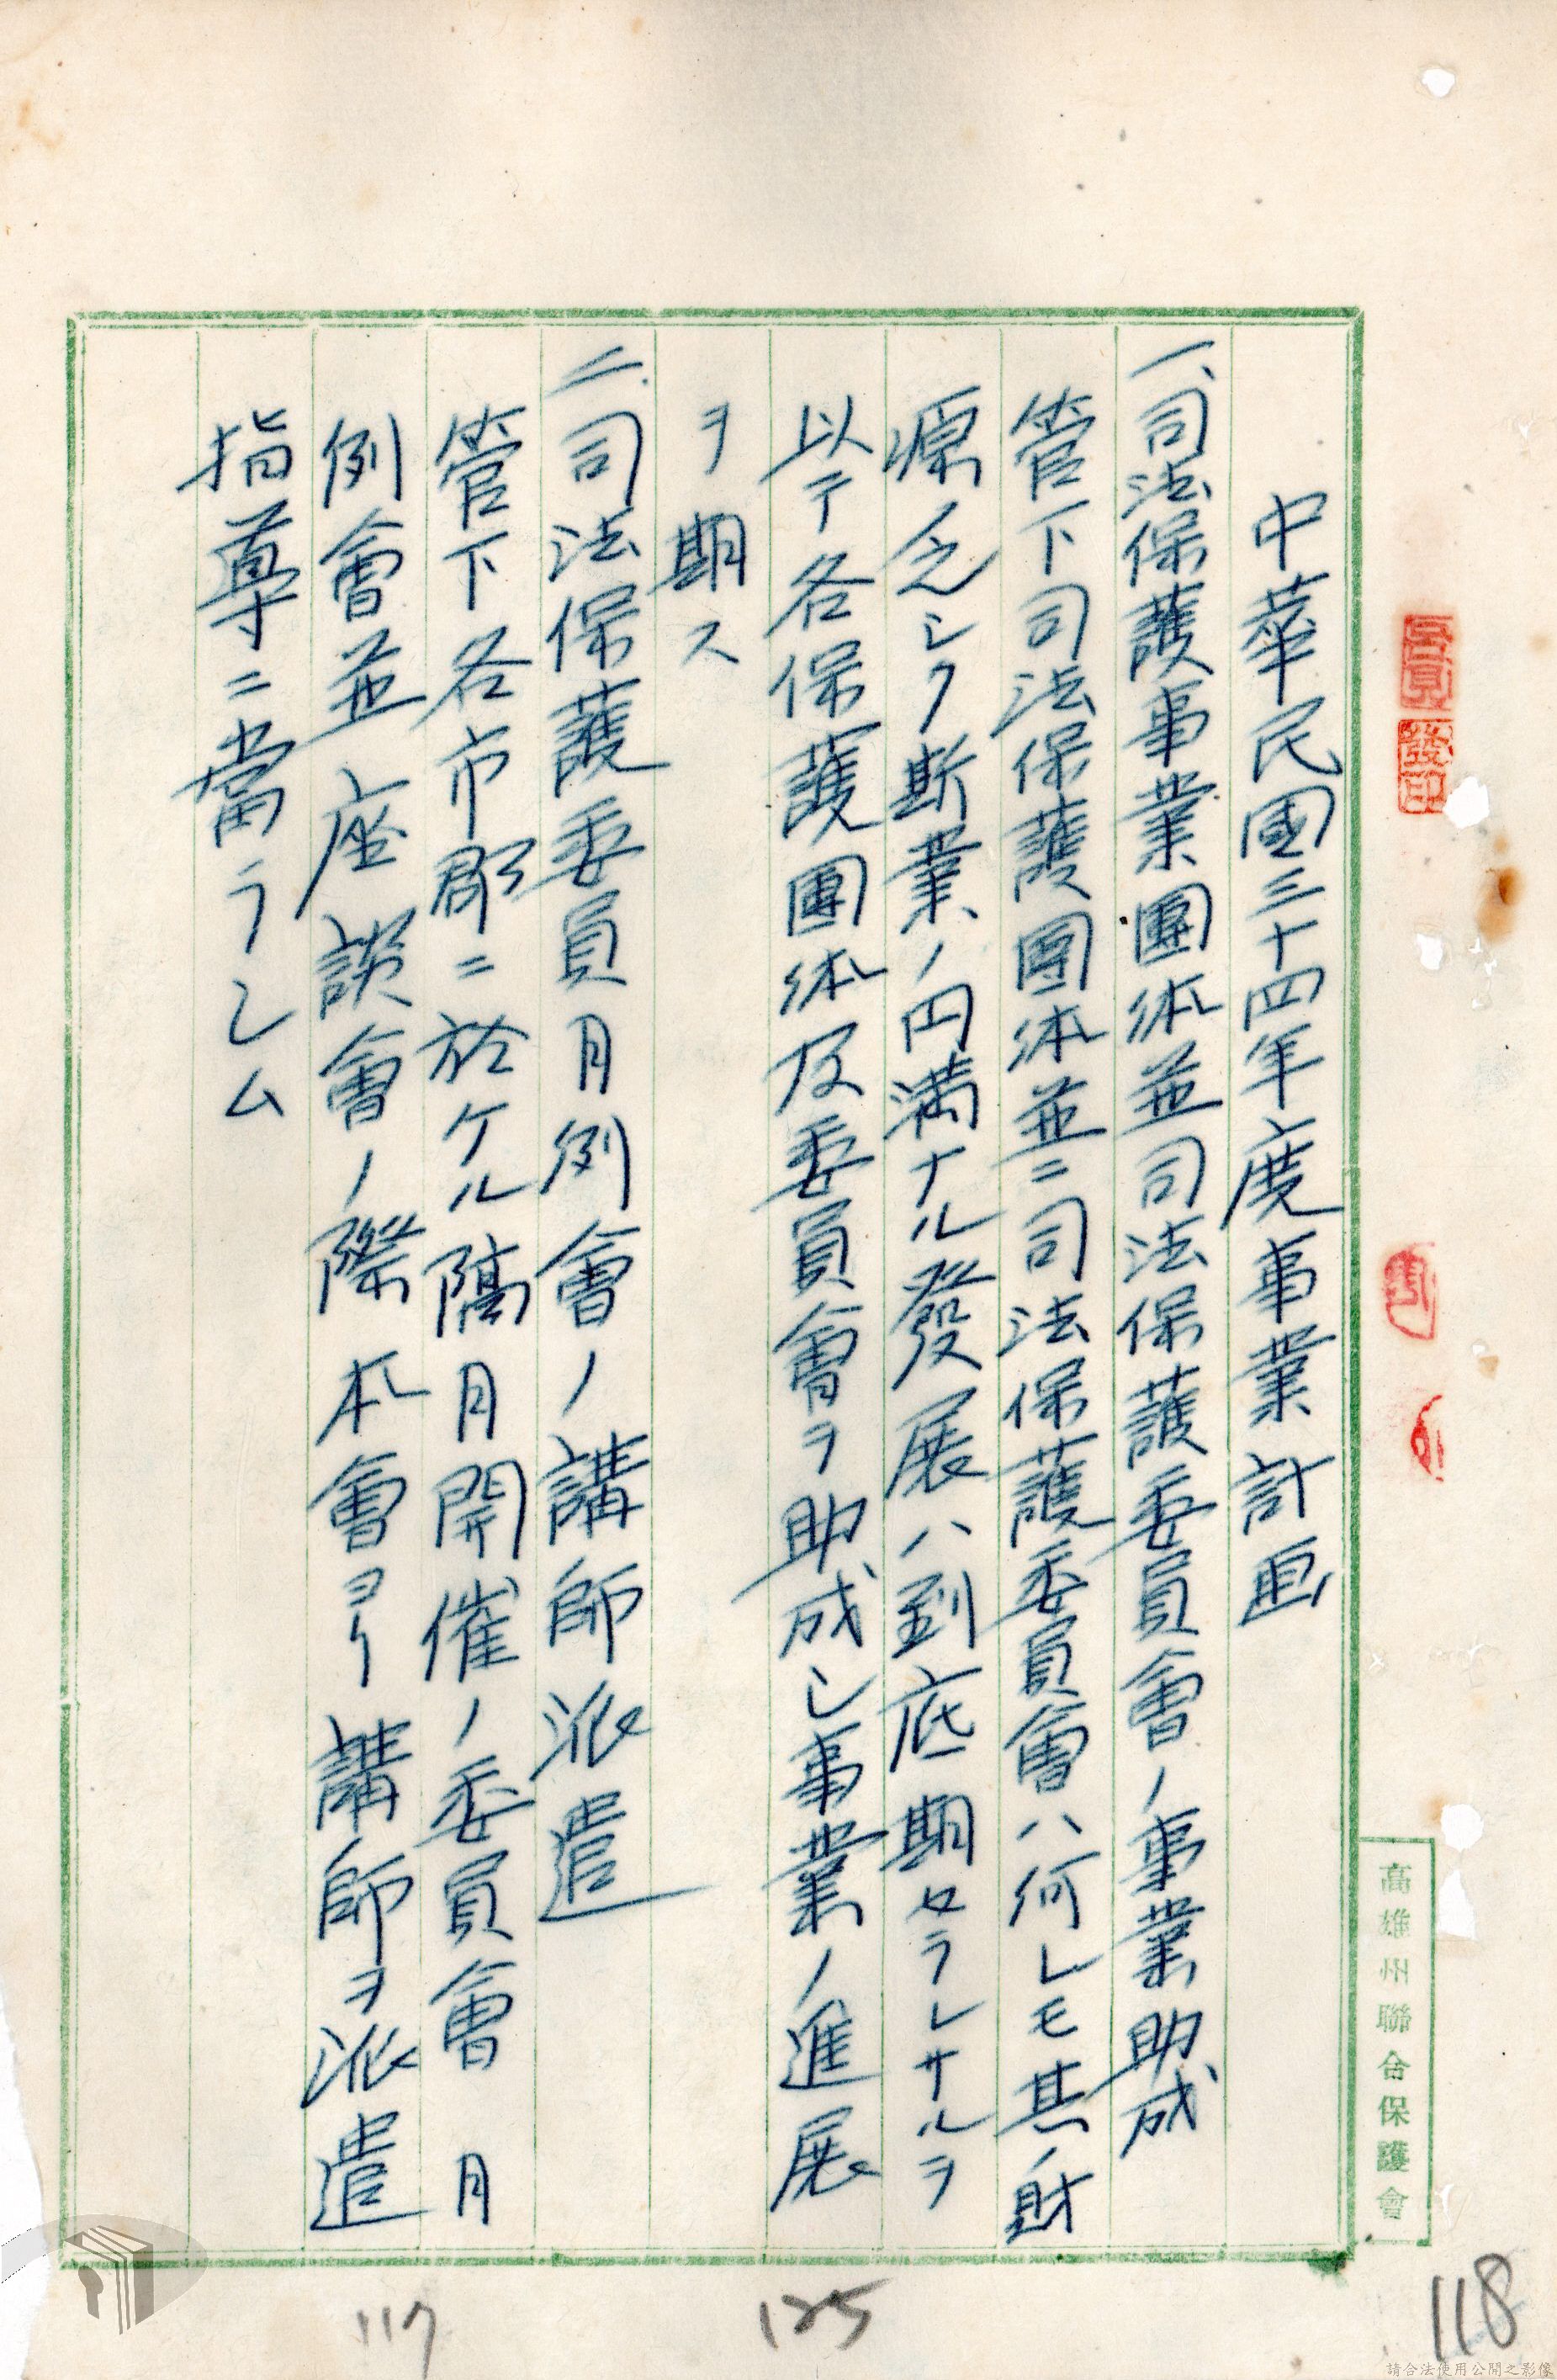 中華民國三十四年度事業計画
一、司法保護事業團体並司法保護委員會ノ事業助成
管下司法保護團体並ニ司法保護委員會ハ何レモ其ノ財
源乏シク斯業ノ円満ナル発展ハ到底期セラレサルヲ
以テ各保護團体及委員會ヲ助成シ事業ノ進展
ヲ期ス
二.司法保護委員月例會ノ講師派遣
管下各市郡ニ於ケル隔月開催ノ委員會月
例會並座談會ノ際本會ヨリ講師ヲ派遣
指導ニ當ラシム
高雄州聯合保護會
118
125
117
請合法使用公開之影像